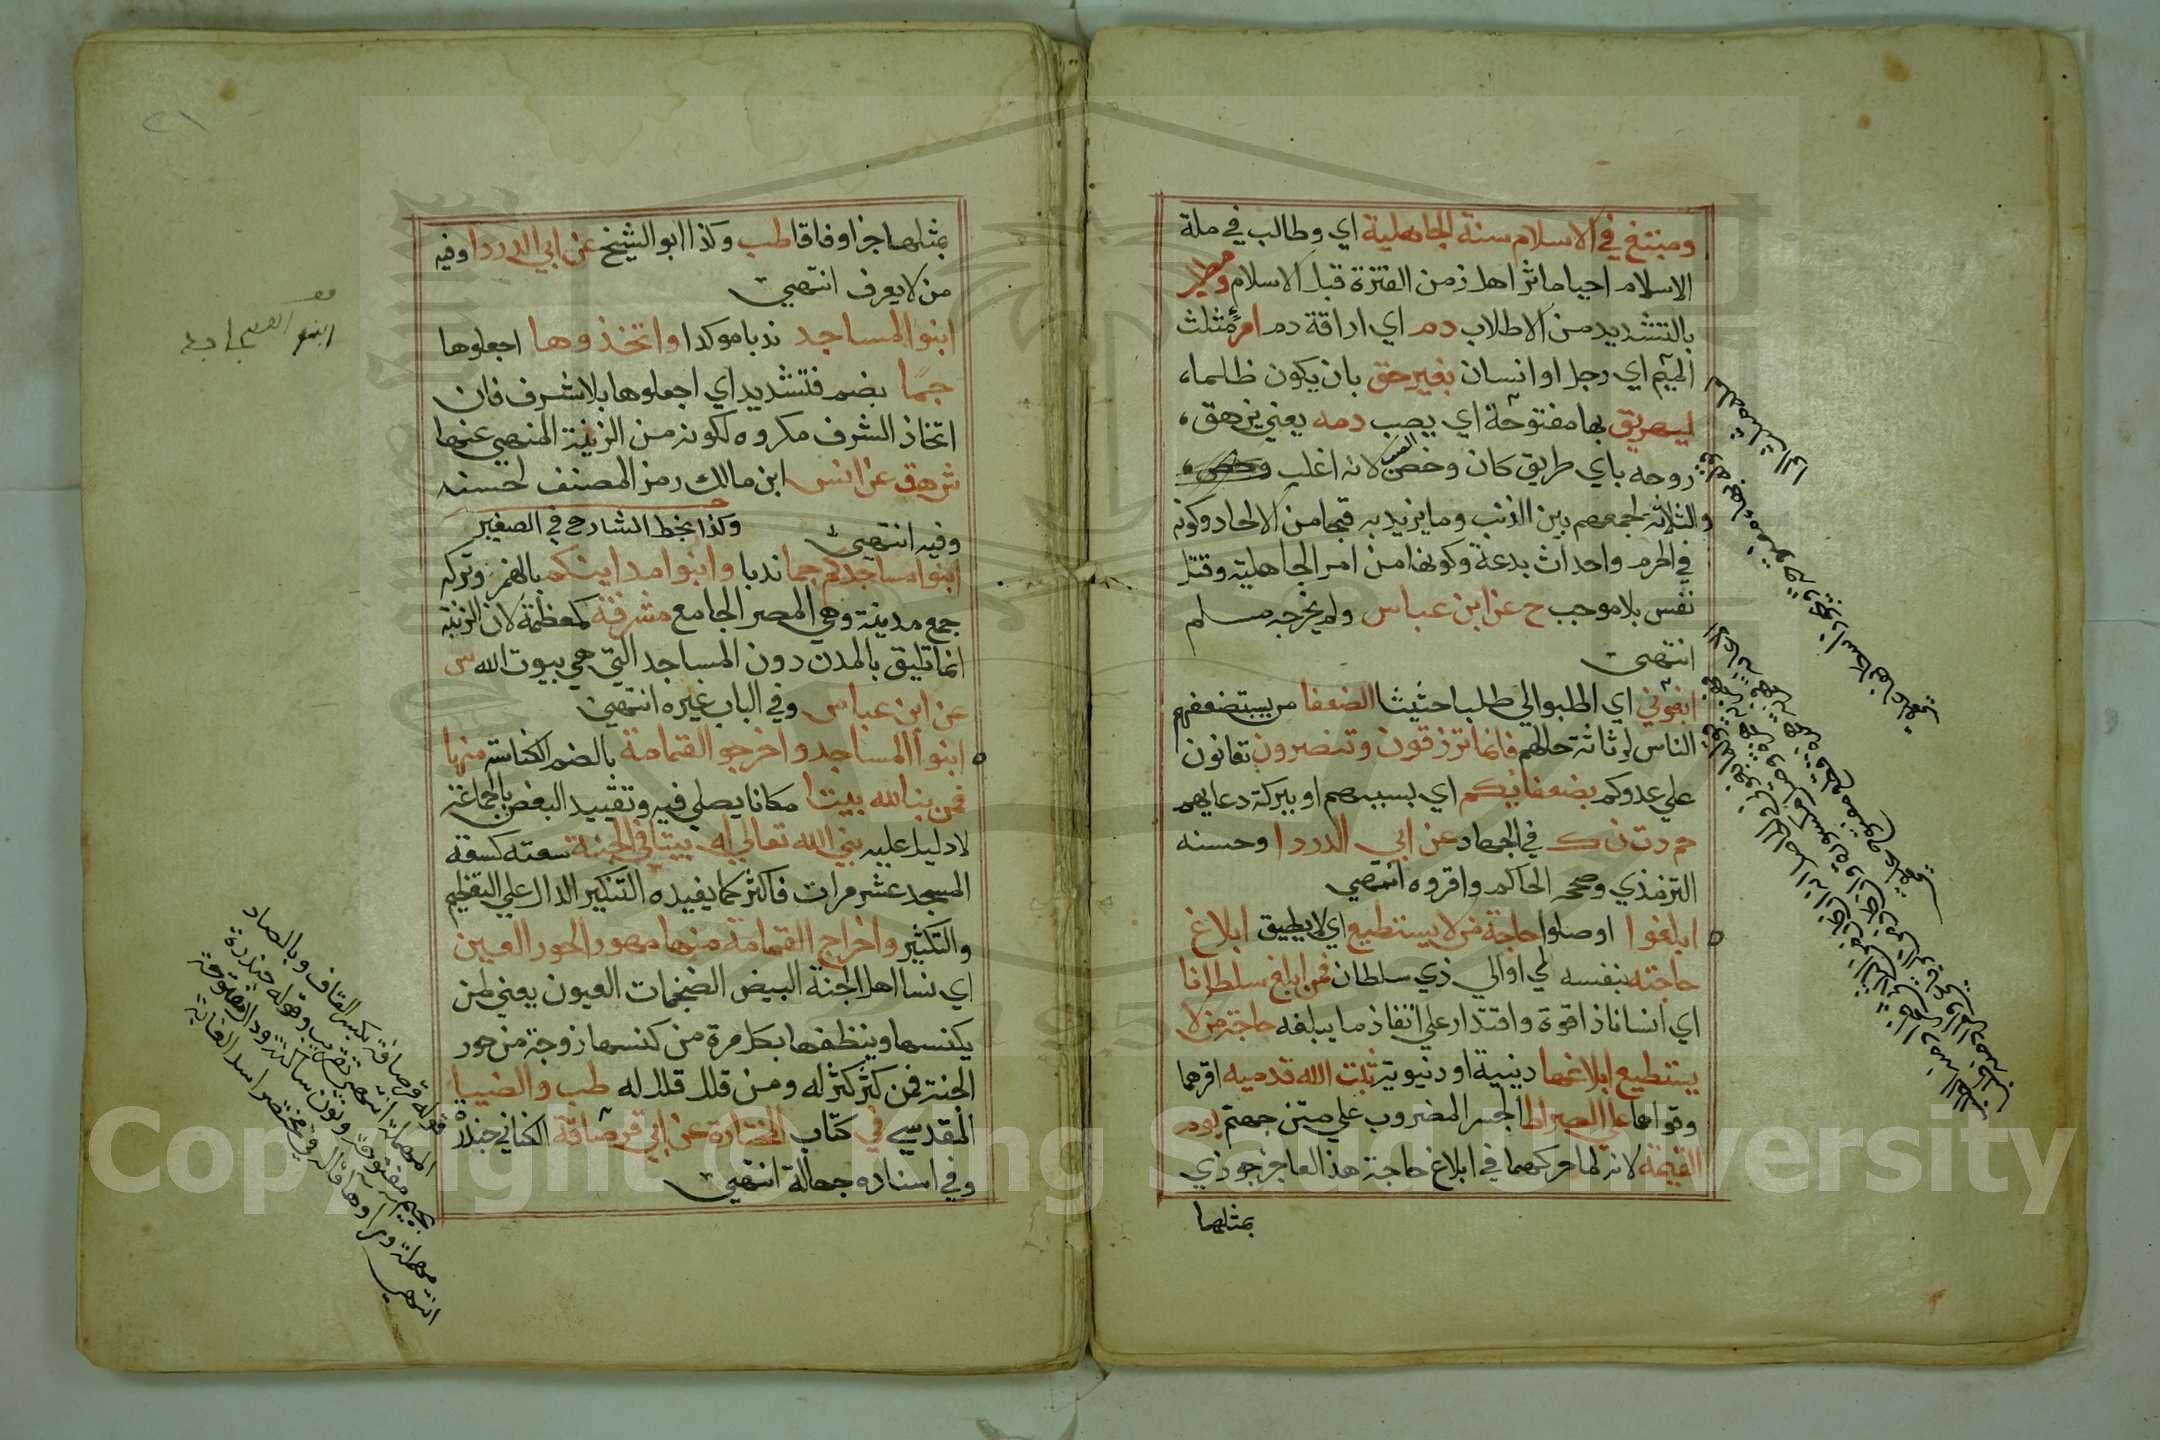 ومبتغ في الاسلام سنة الجاهلية اي وطالب في ملة
الاسلام احيا ماثر اهل زمن الفترة قبل الاسلام ومطلب
بالتشديد من الاطلاب دم اي اراقة دم امرئ مثلث
الميم اي رجل او انسان بغير حق بان يكون ظلما
ليهريق بها مفتوحة اي يصب دمه يعني يزهق
روحه باي طريق كان وخص الصب لانه اغلب
والثلاثة لجمعهم بين الذنب وما يزيد به قبحا من الالحاد وكونه
في الحرم واحداث بدعة وكونها من امر الجاهلية وقتل
نفس بلا موجب خ عن ابن عباس ولم يخرجه مسلم
انتهى
ابغوني اي اطلبوا لي طلبا حثيثا الضعفا من يستضعفهم
الناس لرثاثة حالهم فانما ترزقون وتنصرون تعانون
علي عدوكم بضعفايكم اي بسببهم او ببركة دعايهم
حم د ت ن ك في الجهاد عن ابي الدردا وحسنه
الترمذي وصححه الحاكم واقروه انتهى
ابلغوا اوصلوا حاجة من لا يستطيع اي لا يطيق ابلاغ
حاجته بنفسه لي او الي ذي سلطان فمن ابلغ سلطانا
اي انسانا ذا قوة واقتدار علي انفاذ ما يبلغه حاجة من لا
يستطيع ابلاغها دينية او دنيوية ثبت الله قدميه اقرهما
وقواهما علي الصراط الجسر المضروب علي متن جهنم يوم
القيمة لانه لما حركهما في ابلاغ حاجة هذا العاجز جوزي
بمثلها
بمثلها جزا وفاقا طب وكذا ابو الشيخ عن ابي الدردا وفيه
من لا يعرف انتهى
ابنوا المساجد ندبا موكدا واتخذوها اجعلوها
جما بضم فتشديد اي اجعلوها بلا شرف فان
اتخاذ الشرف مكروه لكونه من الزينة المنهي عنها
ش هق عن انس ابن مالك رمز المصنف لحسنه
وفيه انتهى وكذا بخط الشارح في الصغير
ابنوا مساجدكم جما ندبا وابنوا مداينكم بالهمز وتركه
جمع مدينة وهي المصر الجامع مشرفة كمعظمة لان الزينة
انما تليق بالمدن دون المساجد التي هي بيوت الله ش
عن ابن عباس وفي الباب غيره انتهى
ابنوا المساجد واخرجو القمامة بالضم الكناسة منها
فمن بنا لله بيتا مكانا يصلي فيه وتقييد البعض بالجماعة
لا دليل عليه بني الله تعالي له بيتا في الجنة سعته كسعة
المسجد عشر مرات فاكثر كما يفيده التنكير الدال علي التعظيم
والتكثير واخراج القمامة منها مهور الحور العين
اي نسا اهل الجنة البيض الضخمات العيون يعني لمن
يكنسها وينظفها بكل مرة من كنسها زوجة من حور
الجنة فمن كثر كثر له ومن قلل قلل له طب والضيا
المقدسي في كتاب المختارة عن ابي قرصافة الكناني جندرة
وفي اسناده جهالة انتهى
قوله قرصافة بكسر القاف وبالصاد
المهملة انتهى تقريب وقوله جندرة
بجيم مفتوحة ونون ساكنة ودال مفتوحة
مهملة ورا وها قاله في مختصر اسد الغابة
انتهى
٢١